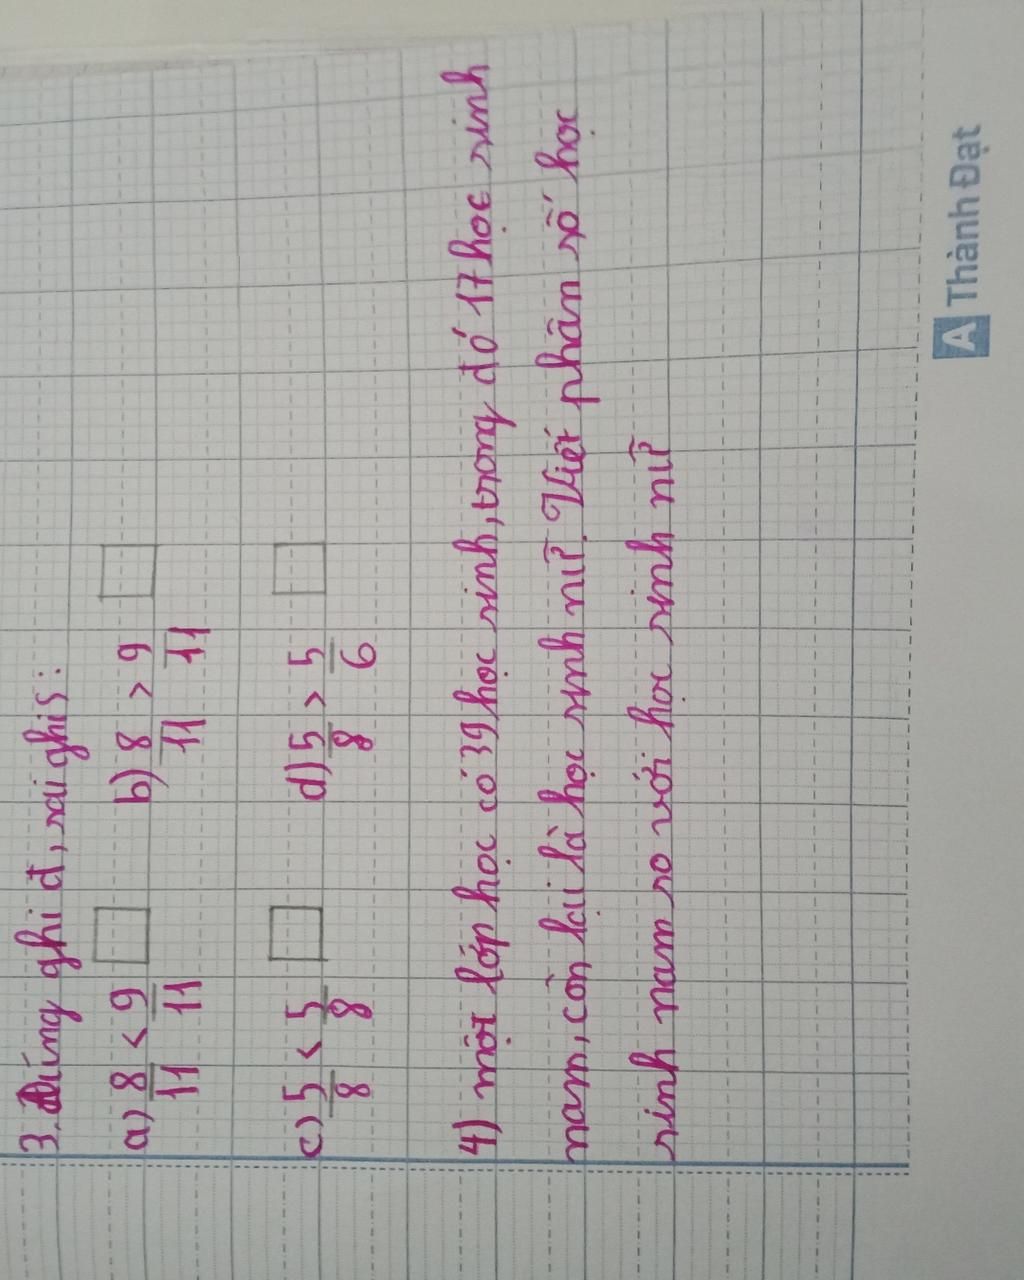 3. Đúng ghi đ, sai ghi s:
a) 8/11 < 9/11 □ b) 8/11 > 9/11 □
c) 5/8 < 5/8 □ d) 5/8 > 5/6 □
4) một lớp học có 39 học sinh, trong đó 17 học sinh
nam, còn lại là học sinh nữ. Viết phân số học
sinh nam so với học sinh nữ
A Thành Đạt